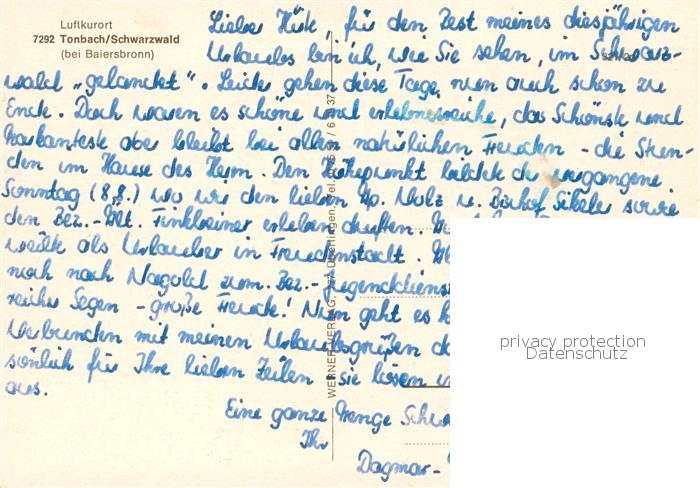 Luftkurort
7292 Tonbach/Schwarzwald
(bei Baiersbronn)
Lieber Hirte, für den Rest meines diesjährigen
Urlaubes bin ich, wie Sie sehen, im Schwarz-
wald "gelandet". Leider gehen diese Tage nun auch schon zu
Ende. Doch waren es schöne und erlebnisreiche, das Schönste und
Markanteste aber bleibt bei allen natürlichen Freuden - die Stun-
den im Hause des Herrn. Den Höhepunkt bildete der vergangene
Sonntag (8.8.) wo wir den lieben Ap. Volz u. Bischof sowie
den Bez.-Ält. Finkbeiner erleben durften.
weilte als Urlauber in Freudenstadt.
noch nach Nagold zum Bez.-Jugenddienst
reicher Segen - große Freude! Nun geht es
Verbunden mit meinen Urlaubsgrüßen
sönlich für Ihre lieben Zeilen sie lösen
aus.
Eine ganze Menge
Ihr
Dagmar-
WERNER VERLAG, 777 Überlingen, Tel.
privacy protection
Datenschutz